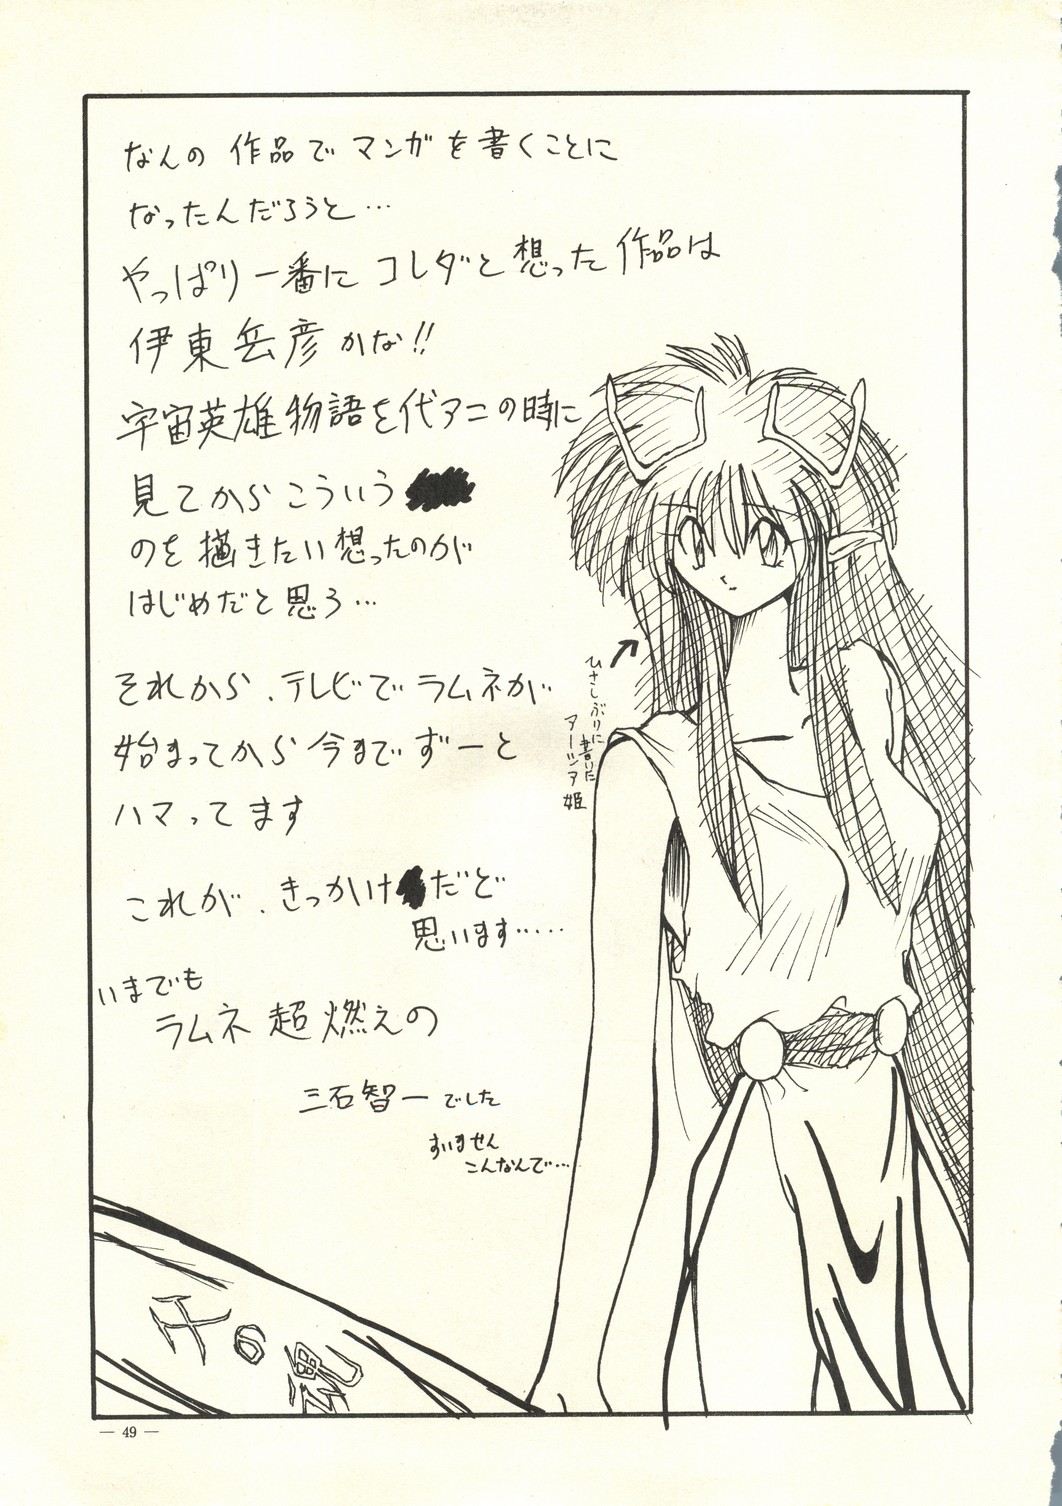 なんの作品でマンガを書くことに
なったんだろうと…
やっぱり一番にコレダと想った作品は
伊東岳彦かな!!
宇宙英雄物語を代アニの時に
見てからこういう
のを描きたい想ったのが
はじめだと思う…
それから、テレビでラムネが
始まってから今までずーと
ハマってます
これが、きっかけだと
思います……
いまでも
ラムネ超燃えの
三石智一でした
すいません
こんなんで…
ひさしぶりに
書いた
アーリア姫
— 49 —